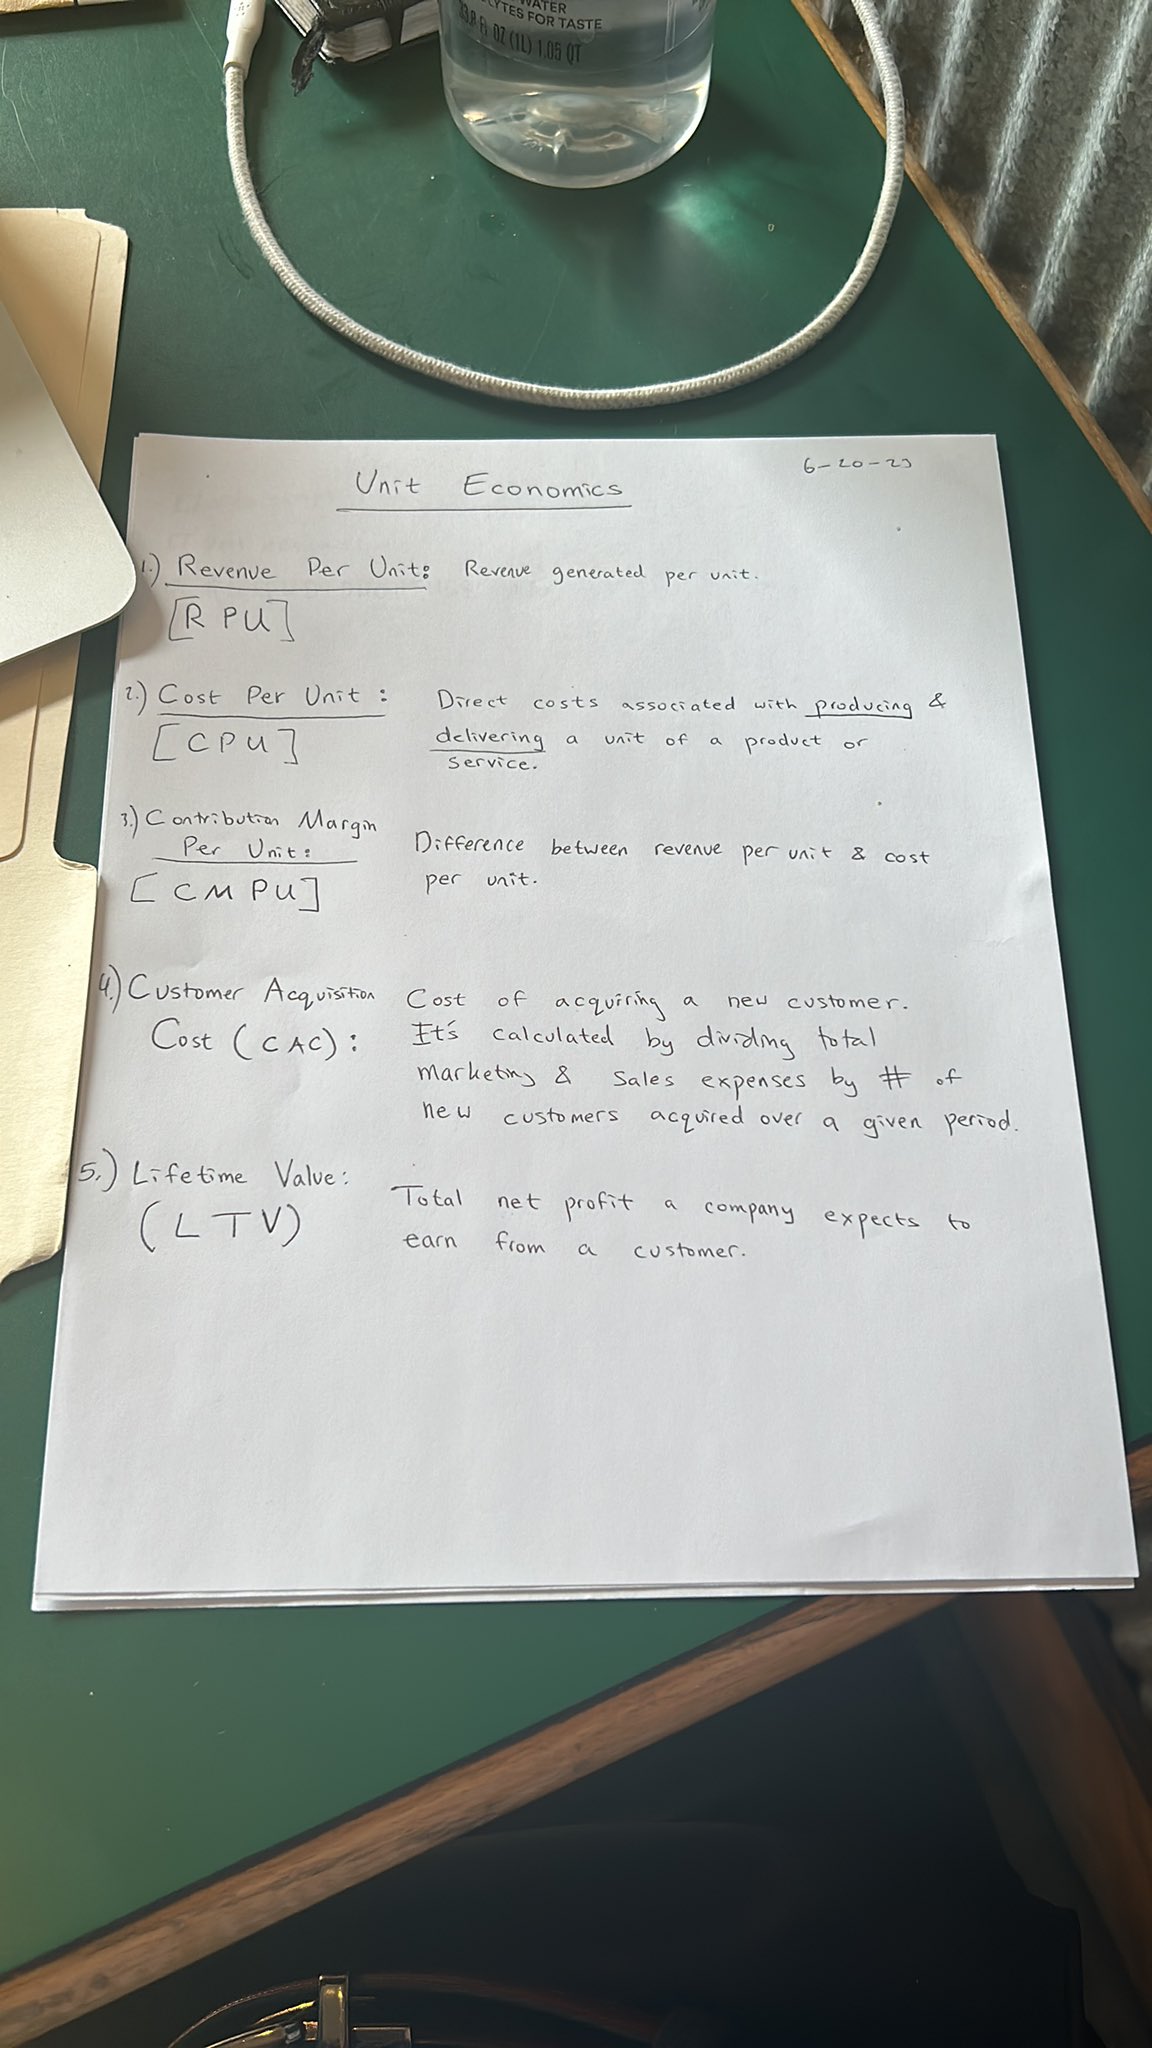 WATER
LYTES FOR TASTE
33.8 FL OZ (1L) 1.05 QT
6-20-23
Unit Economics
1.) Revenue Per Unit: Revenue generated per unit.
[RPU]
2.) Cost Per Unit: Direct costs associated with producing &
[CPU] delivering a unit of a product or
service.
3.) Contribution Margin
Per Unit: Difference between revenue per unit & cost
[CMPU] per unit.
4.) Customer Acquisition Cost of acquiring a new customer.
Cost (CAC): It's calculated by dividing total
marketing & sales expenses by # of
new customers acquired over a given period.
5.) Lifetime Value: Total net profit a company expects to
(LTV) earn from a customer.